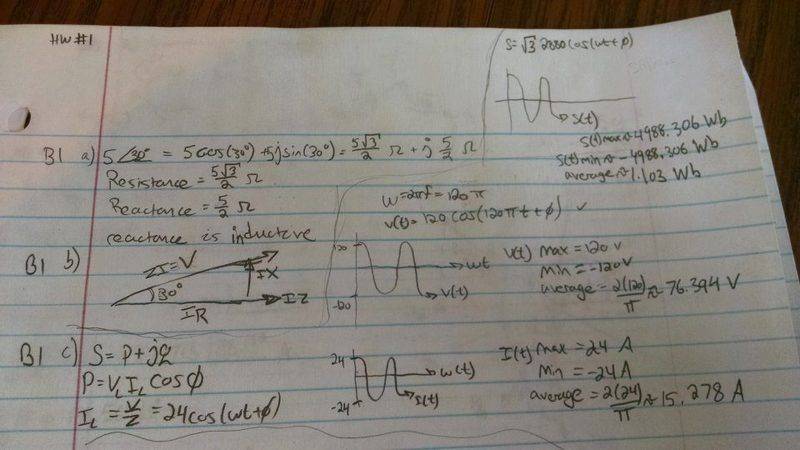 HW#1
S=√3 2880 cos(wt+ϕ)
S(t)
S(t)max≈4988.306 Wb
S(t)min≈-4988.306 Wb
average≈1.103 Wb
B1 a) 5∠30° = 5cos(30°)+5jsin(30°)=5√3/2 Ω + j 5/2 Ω
Resistance = 5√3/2 Ω
Reactance = 5/2 Ω
reactance is inductive
w=2πf=120π
v(t)=120 cos(120πt+ϕ) ✓
B1 b) ZI=V
30°
IX
IR
IZ
120
-120
wt
V(t)
V(t) max=120 v
min=-120v
average=2(120)/π≈76.394 V
B1 c) S=P+jQ
P=V_L I_L cosϕ
I_L = V/Z = 24cos(wt+ϕ)
24
-24
w(t)
I(t) max=24 A
min=-24A
average=2(24)/π≈15.278 A